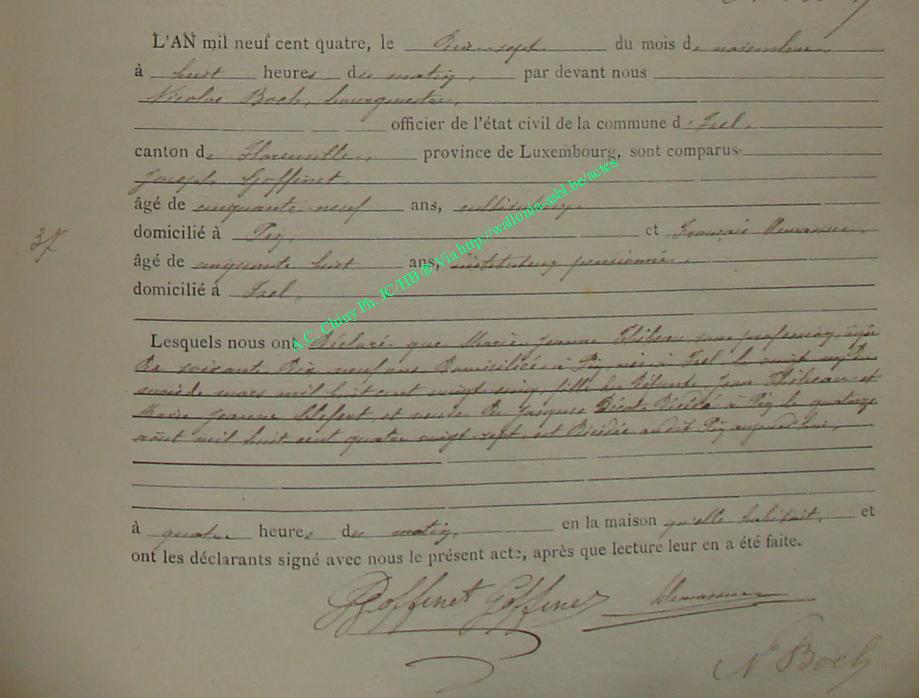 L'AN mil neuf cent quatre, le Dix-sept du mois de novembre
à huit heures du matin, par devant nous
Nicolas Boch, bourgmestre,
officier de l'état civil de la commune d'Izel,
canton de Florenville, province de Luxembourg, sont comparus
Joseph Goffinet,
âgé de cinquante neuf ans, cultivateur,
domicilié à Pin, et François
âgé de cinquante huit ans, instituteur pensionné,
domicilié à Izel,
37
Lesquels nous ont Déclaré que Marie Jeanne Thibeau, sans profession, âgée
De soixante Dix neuf ans Domiciliée à Pin, née à Izel le vingt
mars mil huit cent vingt cinq, fille des Défunts Jean Thibeau et
Marie Jeanne et veuve De Jacques Décédé à Pin le quatorze
août mil huit cent quatre vingt sept, est Décédée au dit Pin aujourd'hui,
à quatre heures du matin, en la maison qu'elle habitait, et
ont les déclarants signé avec nous le présent acte, après que lecture leur en a été faite.
Goffinet Goffinet
N Boch
A.C. Chiny Ph. JC/HB ® Via http://wallonia-asbl.be/actes